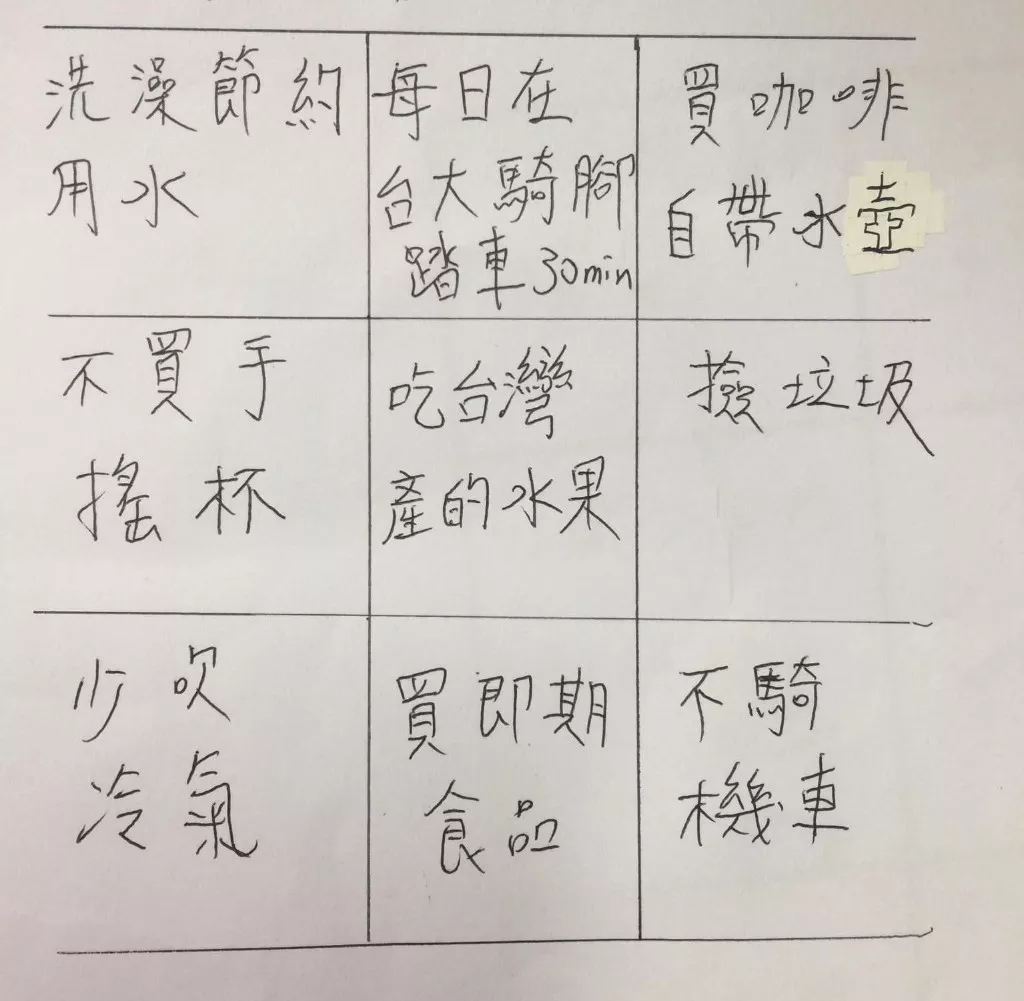 洗澡節約
用水
每日在
台大騎腳
踏車30min
買咖啡
自帶水壺
不買手
搖杯
吃台灣
產的水果
撿垃圾
少吹
冷氣
買即期
食品
不騎
機車